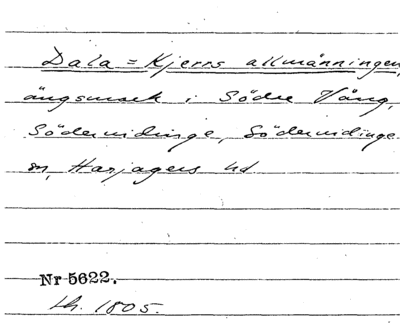 Dala=Kjerrs allmänningen,
ängsmark i Södre Vång,
Södervidinge, Södervidinge
sn, Harjagers hd
Nr 5622.
Lh. 1805.